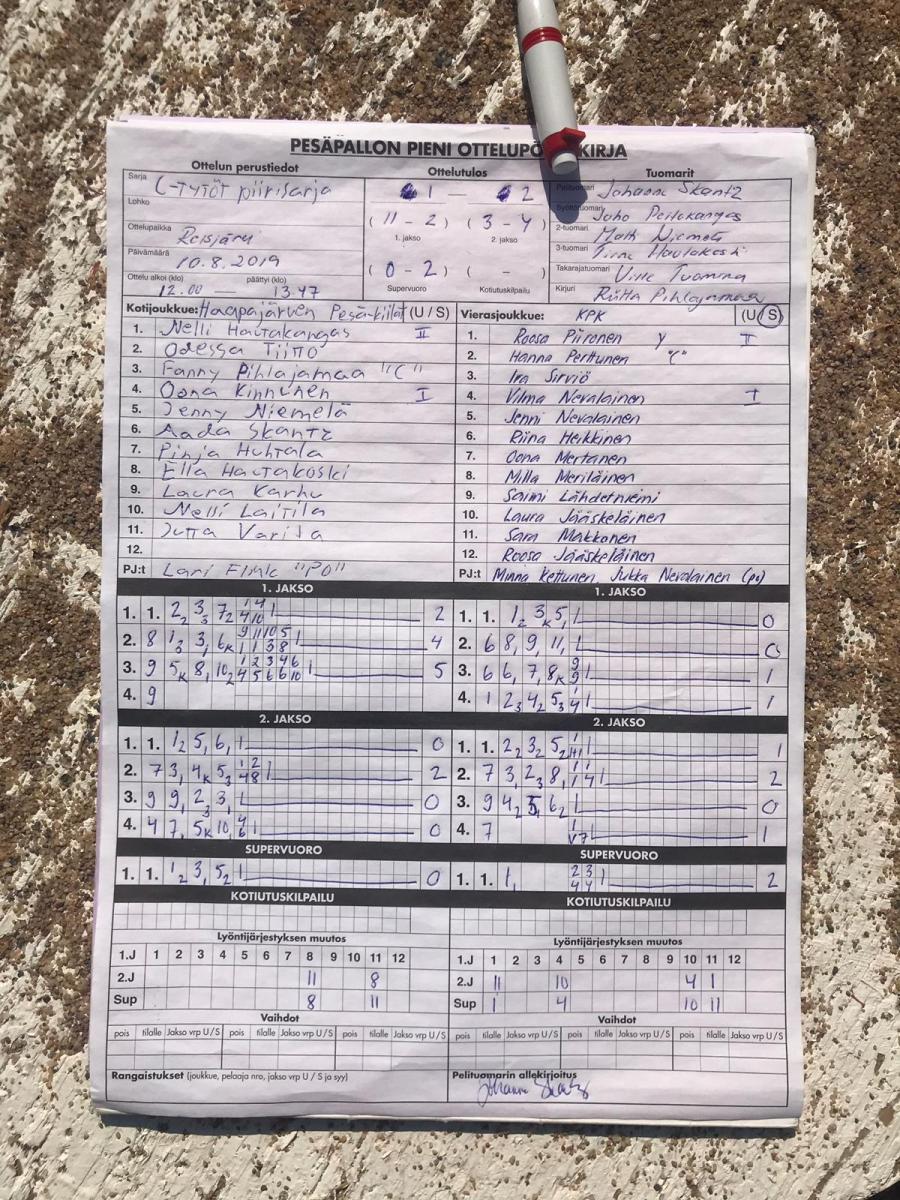 PESÄPALLON PIENI OTTELUPÖ KIRJA
Ottelun perustiedot
Sarja C-Tytöt piirisarja
Lohko
Ottelupaikka Reisjärvi
Päivämäärä 10.8.2019
Ottelu alkoi (klo) päättyi (klo)
12.00 — 13.47
Ottelutulos
1 — 2
( 11 - 2 ) ( 3 - 4 )
1. jakso 2. jakso
( 0 - 2 ) ( - )
Supervuoro Kotiutuskilpailu
Tuomarit
Pelituomari Johanna Skantz
Syöttötuomari Juho Peltokangas
2-tuomari Matti Niemelä
3-tuomari Hautakoski
Takarajatuomari Ville Tuomina
Kirjuri Riitta Pihlajamaa
Kotijoukkue: Haapajärven Pesä-Kiilat (U / S)
1. Nelli Hautakangas II
2. Odessa Tiitto
3. Fanny Pihlajamaa "C"
4. Oona Kinnunen I
5. Jenny Niemelä
6. Aada Skantz
7. Pinja Huhtala
8. Ella Hautakoski
9. Laura Karhu
10. Nelli Laitila
11. Jutta Varila
12.
PJ:t Lari Flink "PO"
Vierasjoukkue: KPK (U / S)
1. Roosa Piironen y II
2. Hanna Perttunen "C"
3. Ira Sirviö
4. Vilma Nevalainen I
5. Jenni Nevalainen
6. Riina Heikkinen
7. Oona Mertanen
8. Milla Meriläinen
9. Saimi Lähdetniemi
10. Laura Jääskeläinen
11. Sara Makkonen
12. Roosa Jääskeläinen
PJ:t Minna Kettunen, Jukka Nevalainen (po)
1. JAKSO
1. 1. 2 2 3 3 7 2 2
2. 8 1 3 3, 6 K 4
3. 9 5 K 8, 10 2 5
4. 9
1. JAKSO
1. 1. 1 2 3 K 5, 0
2. 6 8, 9, 11, 0
3. 6 6, 7, 8 K 1
4. 1 2 3 4 2 5 3 1
2. JAKSO
1. 1. 1 2 5, 6, 0
2. 7 3, 4 K 5 3 2
3. 9 9, 2 3 3, 0
4. 4 7, 5 K 10, 0
2. JAKSO
1. 1. 2 2 3 2 5 2 1
2. 7 3, 2 3 8, 2
3. 9 4 2 5 6 2 0
4. 7 1
SUPERVUORO
1. 1. 1 2 3, 5 2 0
SUPERVUORO
1. 1. 1, 2
KOTIUTUSKILPAILU
KOTIUTUSKILPAILU
Lyöntijärjestyksen muutos
1.J 1 2 3 4 5 6 7 8 9 10 11 12
2.J 11 8
Sup 8 11
Lyöntijärjestyksen muutos
1.J 1 2 3 4 5 6 7 8 9 10 11 12
2.J 11 10 4 1
Sup 1 4 10 11
Vaihdot
pois tilalle Jakso vrp U/S pois tilalle Jakso vrp U/S pois tilalle Jakso vrp U/S
Vaihdot
pois tilalle Jakso vrp U/S pois tilalle Jakso vrp U/S pois tilalle Jakso vrp U/S
Rangaistukset (joukkue, pelaaja nro, jakso vrp U / S ja syy)
Pelituomarin allekirjoitus
Johanna Skantz